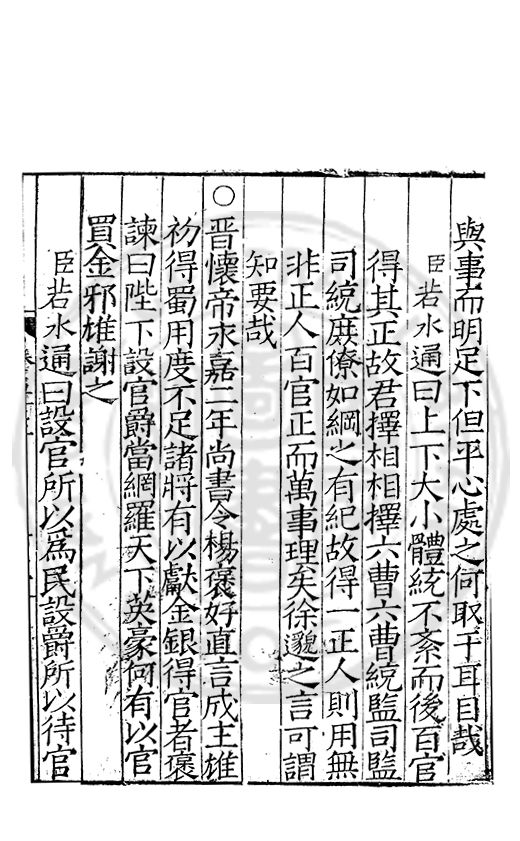 與事而明足下但平心處之何取于耳目哉
臣若水通曰上下大小體統不紊而後百官
得其正故君擇相相擇六曹六曹統監司監
司統庶僚如綱之有紀故得一正人則用無
非正人百官正而萬事理矣徐邈之言可謂
知要哉
○晋懷帝永嘉二年尚書令楊褒好直言成主雄
初得蜀用度不足諸將有以獻金銀得官者褒
諫曰陛下設官爵當網羅天下英豪何有以官
買金邪雄謝之
臣若水通曰設官所以為民設爵所以待官